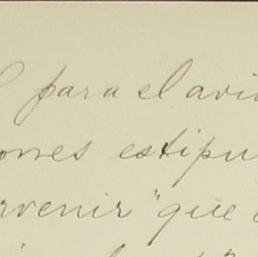 para el avi
ones estipu
rvenir "que